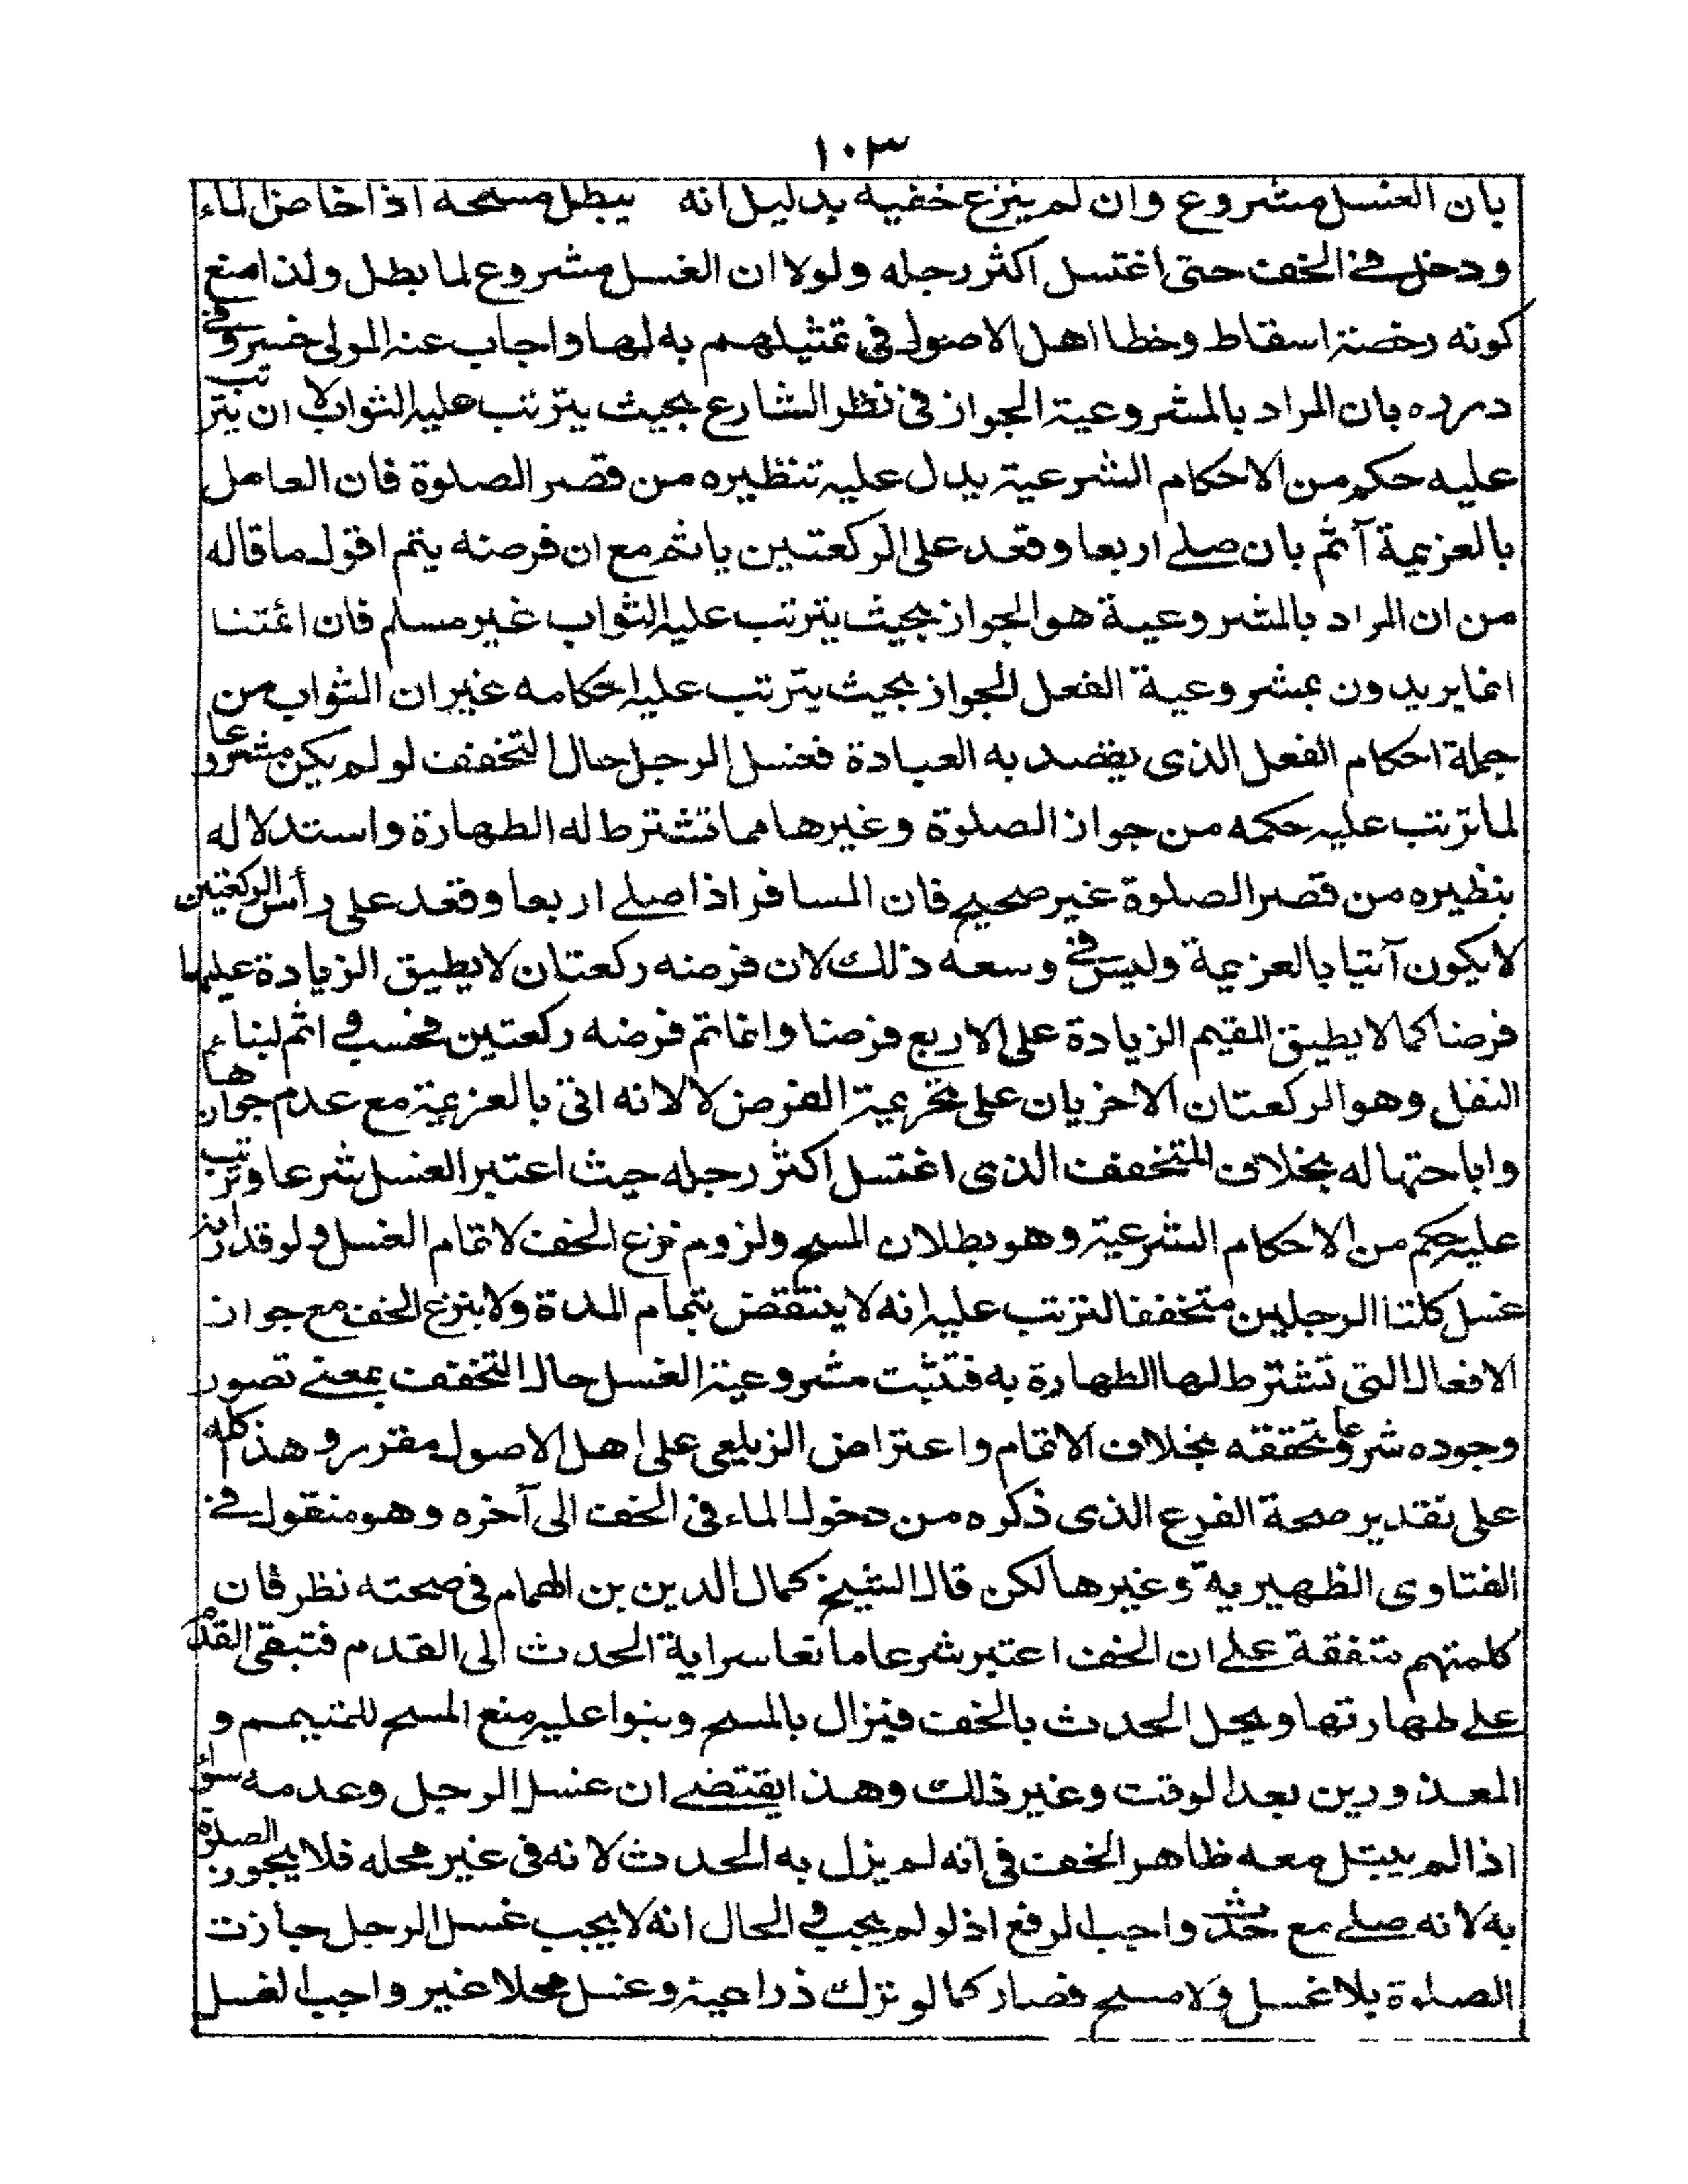 ١٠٣
بان الغسل مشروع وان لم ينزع خفيه بدليل انه يبطل مسحه اذا خاض الماء
ودخل في الخف حتى اغتسل اكثر رجله ولولا ان الغسل مشروع لما بطل ولذا منع
كونه رخصة اسقاط وخطا اهل الاصول في تمثيلهم به لها واجاب عنه المولى خسرو في
درره بان المراد بالمشروعية الجواز في نظر الشارع بحيث يترتب عليه الثواب لا ان يترتب
عليه حكم من الاحكام الشرعية يدل عليه تنظيره من قصر الصلوة فان العامل
بالعزيمة آثم بان صلى اربعا وقعد على الركعتين ياثم مع ان فرضه يتم اقول ما قاله
من ان المراد بالمشروعية هو الجواز بحيث يترتب عليه الثواب غير مسلم فان ائمتنا
انما يريدون بمشروعية الفعل الجواز بحيث يترتب عليه احكامه غير ان الثواب من
جملة احكام الفعل الذى يقصد به العبادة فغسل الرجل حال التخفف لو لم يكن مشروعا
لما ترتب عليه حكمه من جواز الصلوة وغيرها مما تشترط له الطهارة واستدلاله
بنظيره من قصر الصلوة غير صحيح فان المسافر اذا صلى اربعا وقعد على رأس الركعتين
لا يكون آتيا بالعزيمة وليس في وسعه ذلك لان فرضه ركعتان لا يطيق الزيادة عليها
فرضا كما لا يطيق المقيم الزيادة على الاربع فرضا وانما تم فرضه ركعتين فحسب في اثم لبناء
النفل وهو الركعتان الاخريان على تحريمة الفرض لا لانه اتى بالعزيمة مع عدم جوازها
واباحتها له بخلاف المتخفف الذى اغتسل اكثر رجله حيث اعتبر الغسل شرعا وترتب
عليه حكم من الاحكام الشرعية وهو بطلان المسح ولزوم نزع الخف لاتمام الغسل ولو قدر انه
غسل كلتا الرجلين متخففا لترتب عليه انه لا ينتقض بتمام المدة ولا بنزع الخف مع جواز
الافعال التي تشترط لها الطهارة به فتثبت مشروعية الغسل حال التخفف بمعنى تصور
وجوده شرعا وتحققه بخلاف الاتمام واعتراض الزيلعي على اهل الاصول مقرر وهذا كله
على تقدير صحة الفرع الذى ذكره من دخول الماء في الخف الى آخره وهو منقول في
الفتاوى الظهيرية وغيرها لكن قال الشيخ كمال الدين بن الهمام في صحته نظر فان
كلمتهم متفقة على ان الخف اعتبر شرعا مانعا سراية الحدث الى القدم فتبقى القدم
على طهارتها ويحل الحدث بالخف فيزال بالمسح وبنوا عليه منع المسح للمتيمم و
المعذورين بعد الوقت وغير ذلك وهذا يقتضى ان غسل الرجل وعدمه سواء
اذا لم يبتل معه ظاهر الخف في انه لم يزل به الحدث لانه في غير محله فلا يجوز الصلوة
به لانه صلى مع حدث واجب الرفع اذ لو لم يجب في الحال انه لا يجب غسل الرجل جازت
الصلوة بلا غسل ولا مسح فصار كما لو ترك ذراعيه وغسل محلا غير واجب الغسل